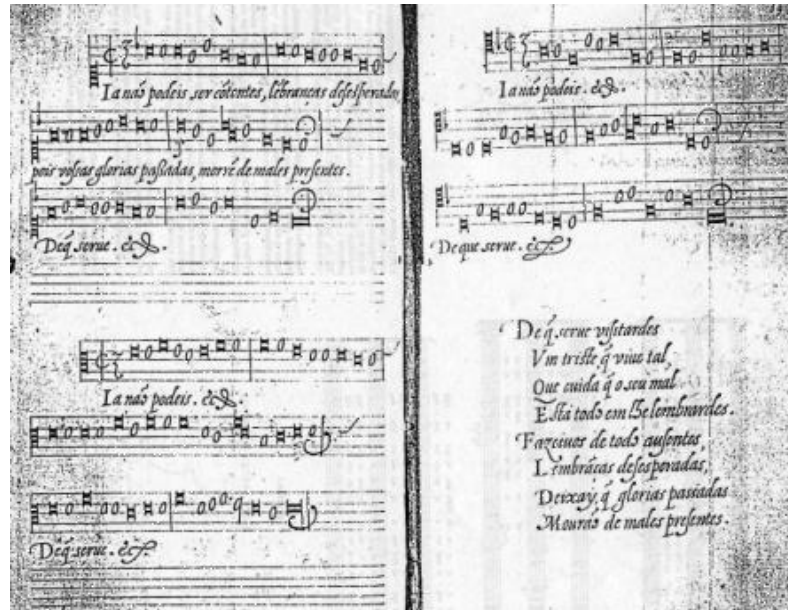 Ia não podeis, ser cõtentes, lẽbranças desesperadas
pois vossas glorias passadas, morrẽ de males presentes.
Deq̃ serue. &c.
Ia não podeis. &c.
Deq̃ serue. &c.
Ia não podeis. &c.
De que serue. &c.
De q̃ serue visitardes
Vm triste q̃ viue tal,
Que cuida q̃ o seu mal
Está todo em lhe lembrardes.
Fazeiuos de todo ausentes,
Lembrãças desesperadas,
Deixay, q̃ glorias passadas
Mourão de males presentes.